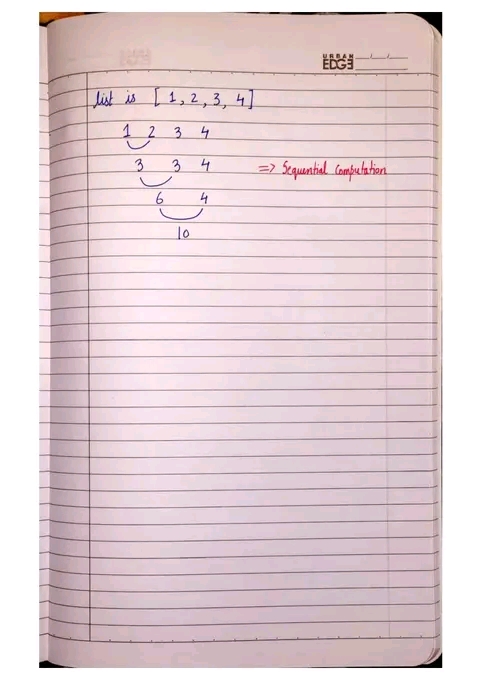 URBAN
EDGE
list is [1, 2, 3, 4]
1 2 3 4
3 3 4 => Sequential Computation
6 4
10